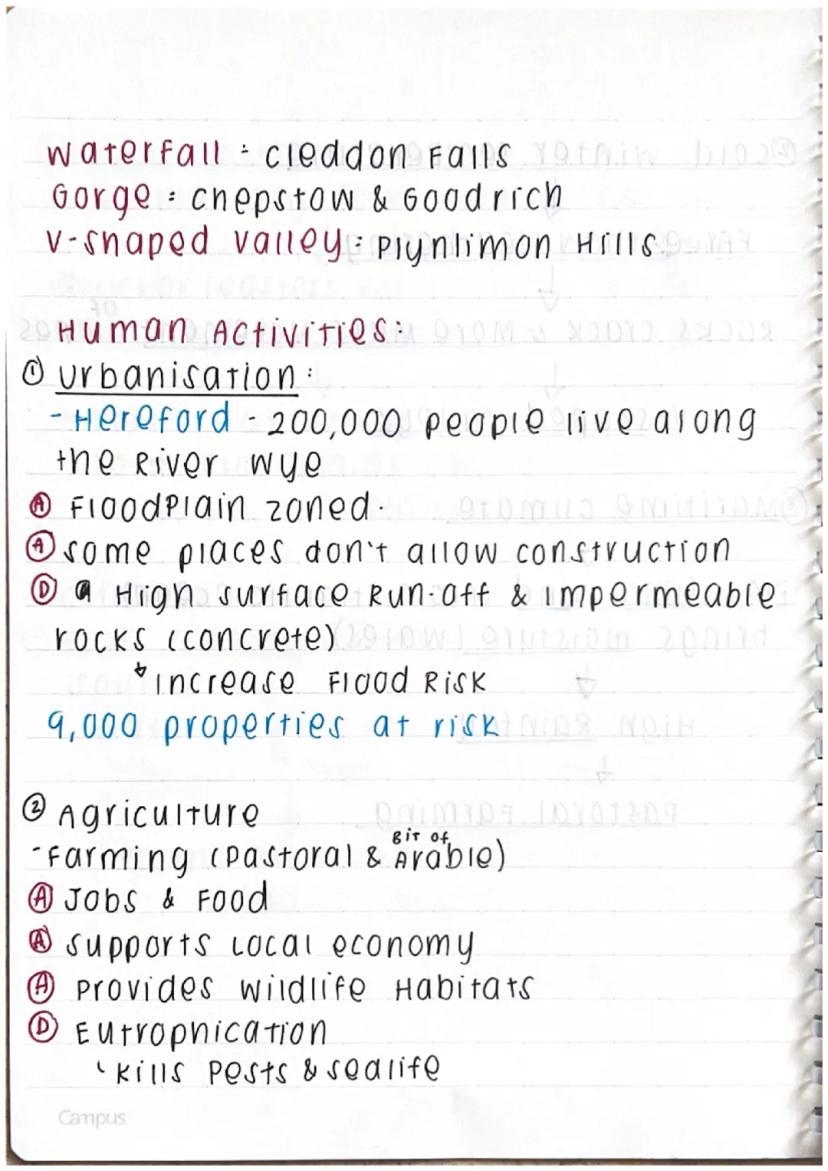 Waterfall : Cleddon Falls
Gorge : Chepstow & Goodrich
V-shaped valley : Plynlimon Hills
Human Activities:
① Urbanisation:
- Hereford - 200,000 people live along
the River Wye
Ⓐ FloodPlain zoned.
Ⓐ some places don't allow construction
Ⓓ High surface Run-off & impermeable
rocks (concrete)
↳ increase Flood Risk
9,000 properties at risk
② Agriculture
- Farming (Pastoral & Bit of Arable)
Ⓐ Jobs & Food
Ⓐ supports Local economy
Ⓐ Provides wildlife Habitats
Ⓓ Eutrophication
↳ Kills Pests & sealife
Campus